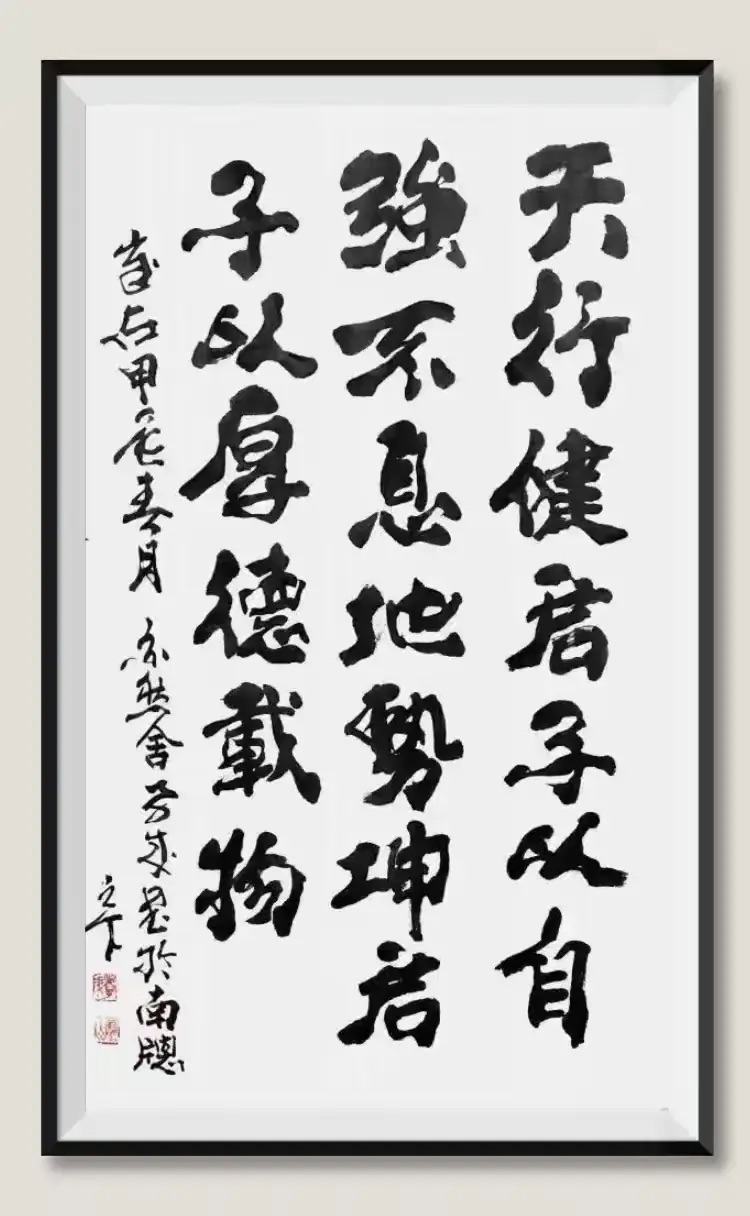 天行健君子以自
強不息地勢坤君
子以厚德載物
歲在甲辰春月 亦然舍 墨於南牕
之下